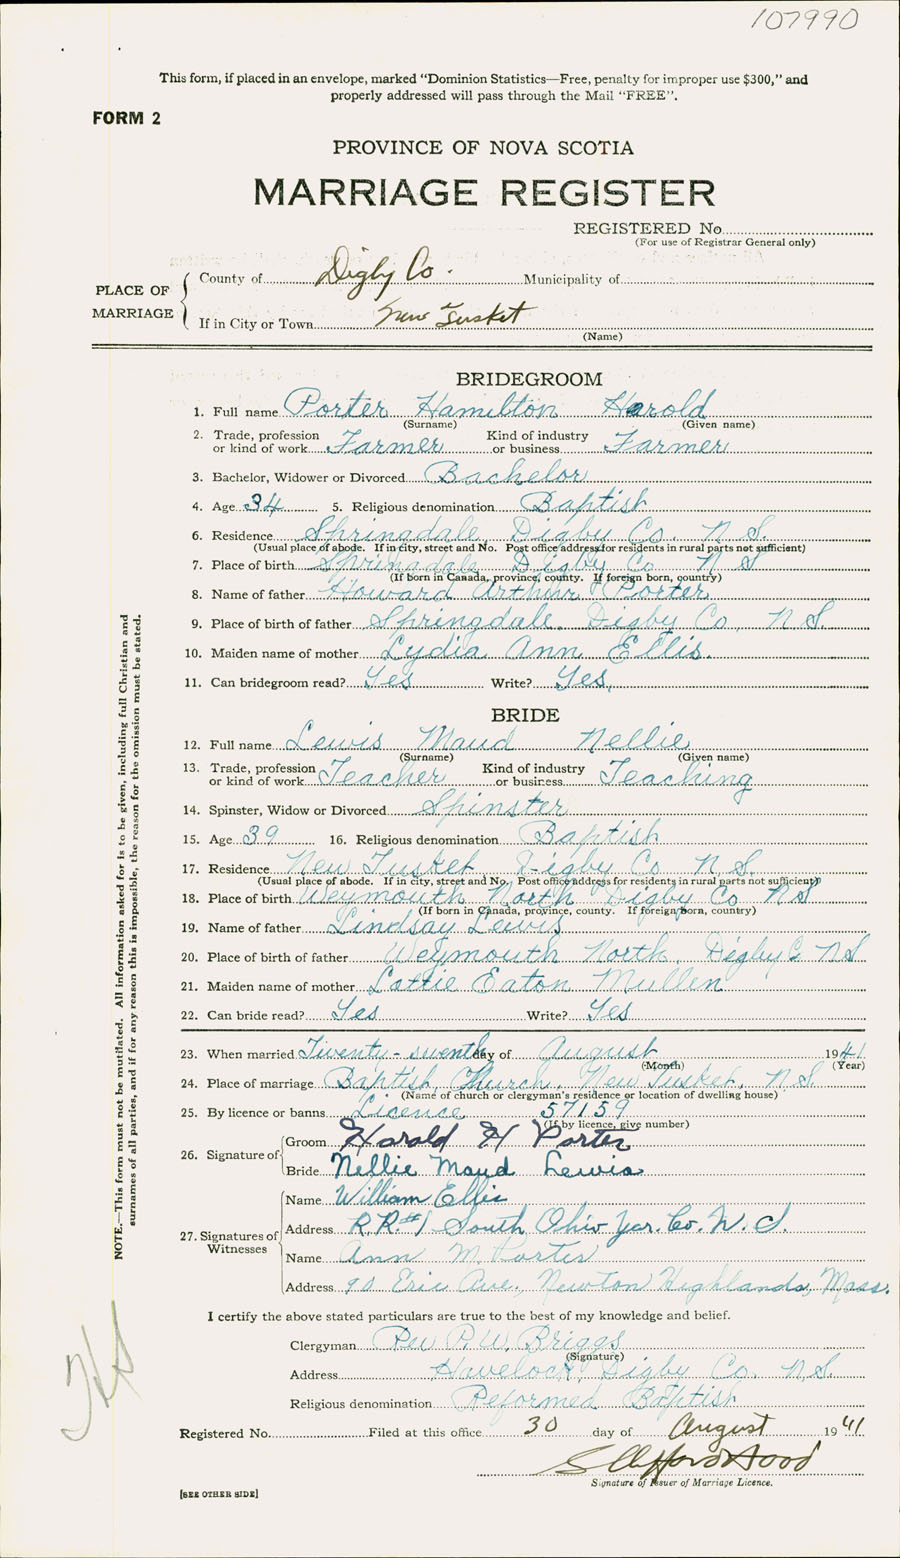 107990
This form, if placed in an envelope, marked "Dominion Statistics—Free, penalty for improper use $300," and
properly addressed will pass through the Mail "FREE".
FORM 2
PROVINCE OF NOVA SCOTIA
MARRIAGE REGISTER
REGISTERED No.
(For use of Registrar General only)
PLACE OF MARRIAGE
County of Digby Co. Municipality of
If in City or Town New Tusket
(Name)
BRIDEGROOM
1. Full name Porter Hamilton Harold
(Surname) (Given name)
2. Trade, profession or kind of work Farmer Kind of industry or business Farmer
3. Bachelor, Widower or Divorced Bachelor
4. Age 34 5. Religious denomination Baptist
6. Residence Springdale, Digby Co. N.S.
(Usual place of abode. If in city, street and No. Post office address for residents in rural parts not sufficient)
7. Place of birth Springdale Digby Co N S
(If born in Canada, province, county. If foreign born, country)
8. Name of father Howard Arthur Porter
9. Place of birth of father Springdale, Digby Co, N.S.
10. Maiden name of mother Lydia Ann Ellis.
11. Can bridegroom read? Yes Write? Yes,
BRIDE
12. Full name Lewis Maud Nellie
(Surname) (Given name)
13. Trade, profession or kind of work Teacher Kind of industry or business Teaching
14. Spinster, Widow or Divorced Spinster
15. Age 39 16. Religious denomination Baptist
17. Residence New Tusket Digby Co N.S.
(Usual place of abode. If in city, street and No. Post office address for residents in rural parts not sufficient)
18. Place of birth Weymouth North Digby Co NS
(If born in Canada, province, county. If foreign born, country)
19. Name of father Lindsay Lewis
20. Place of birth of father Weymouth North, Digby C NS
21. Maiden name of mother Lottie Eaton Mullen
22. Can bride read? Yes Write? Yes
23. When married Twenty-seventh day of August 1941
(Month) (Year)
24. Place of marriage Baptist Church, New Tusket, N.S
(Name of church or clergyman's residence or location of dwelling house)
25. By licence or banns Licence 57159
(If by licence, give number)
26. Signature of
Groom Harold H Porter
Bride Nellie Maud Lewis
27. Signatures of Witnesses
Name William Ellis
Address R.R.#1 South Ohio Yar. Co. N.S.
Name Ann M. Porter
Address 90 Erie Ave., Newton Highlands, Mass.
I certify the above stated particulars are true to the best of my knowledge and belief.
Clergyman Rev P.W. Briggs
(Signature)
Address Havelock, Digby Co. N.S.
Religious denomination Reformed Baptist
Registered No. Filed at this office 30 day of August 1941
Signature of Issuer of Marriage Licence.
[SEE OTHER SIDE]
NOTE.—This form must not be mutilated. All information asked for is to be given, including full Christian and
surnames of all parties, and if for any reason this is impossible, the reason for the omission must be stated.